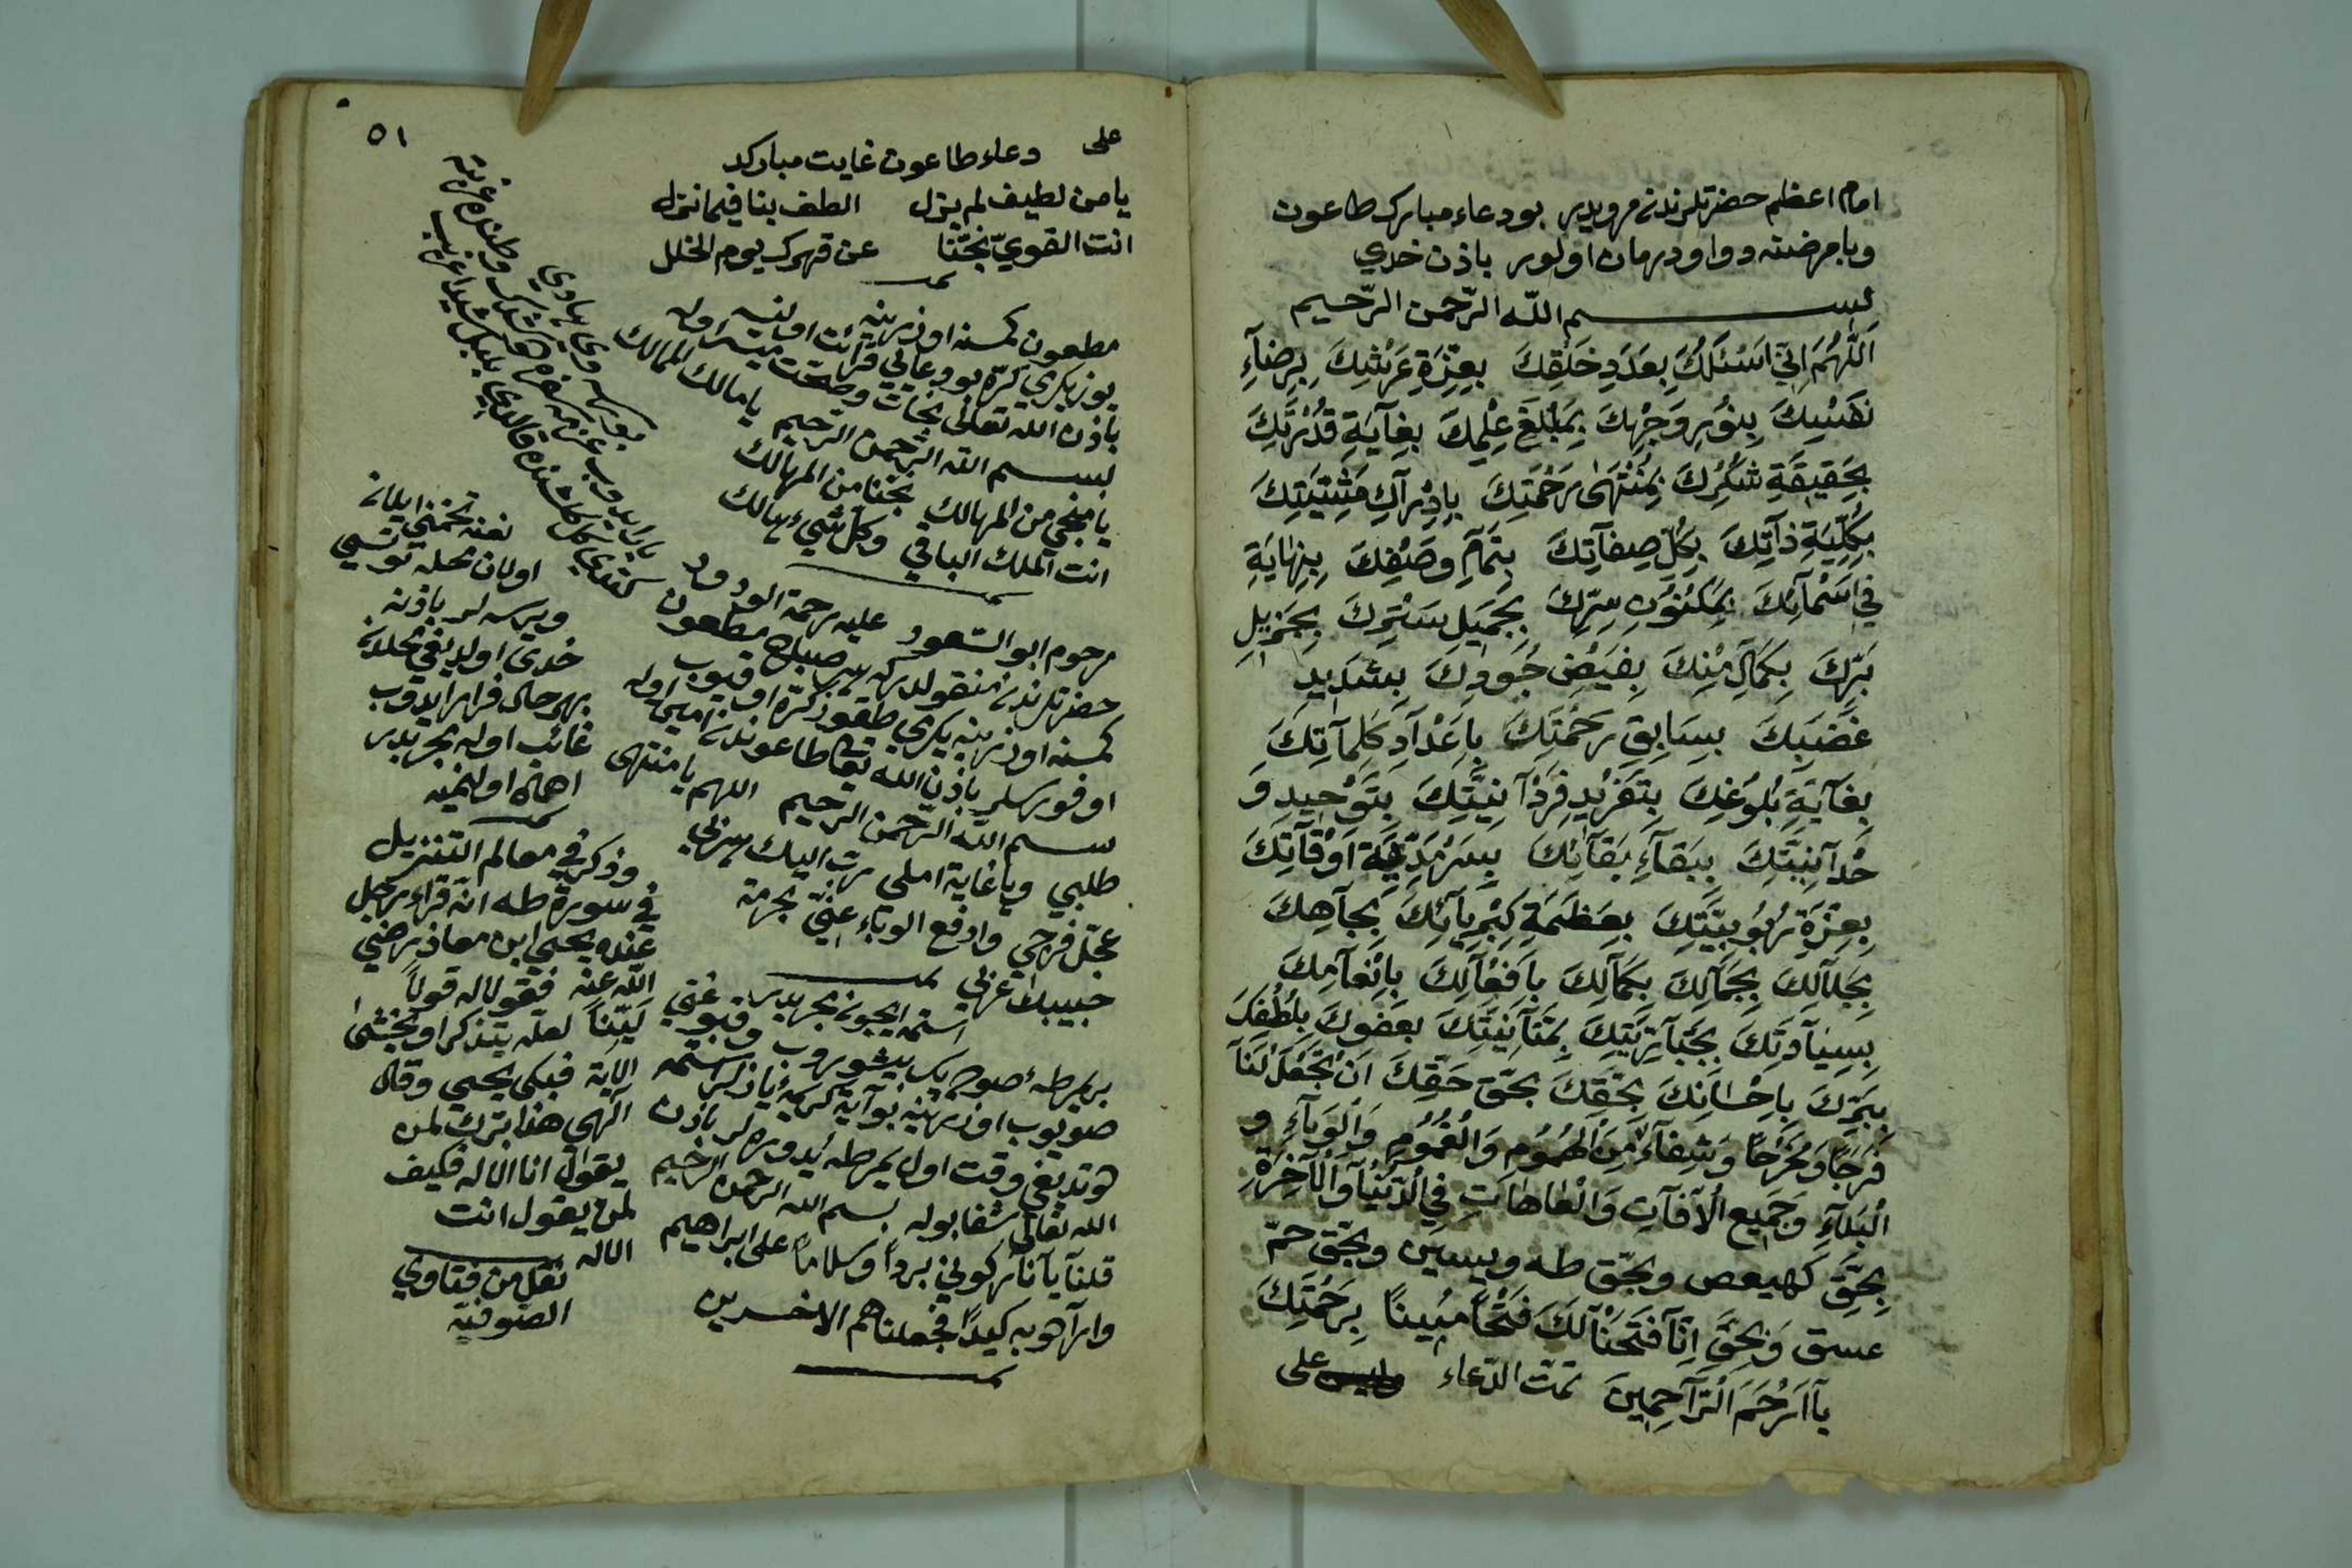 امام اعظم حضرتلرندن مرويدر بو دعاء مبارك طاعون
وبا مرضنه دوا ودرمان اولور باذن خدي
بسم اللّه الرّحمن الرّحيم
اَللّٰهُمَّ اِنّي اَسْئَلُكَ بِعَدَدِ خَلْقِكَ بِعِزَّةِ عَرْشِكَ بِرِضَآءِ
نَفْسِكَ بِنُورِ وَجْهِكَ بِمَبْلَغِ عِلْمِكَ بِغَآيَةِ قُدْرَتِكَ
بِحَقِيقَةِ شُكْرِكَ بِمُنْتَهٰى رَحْمَتِكَ بِاِدْرَآكِ مَشِيَّتِكَ
بِكُلِّيَّةِ ذَآتِكَ بِكُلِّ صِفَآتِكَ بِتَمَآمِ وَصْفِكَ بِنِهَايَةِ
في اَسْمَآئِكَ بِمَكْنُونِ سِرِّكَ بِجَمِيلِ سَتْرِكَ بِجَزِيلِ
بَرِّكَ بِكَمَآلِ مَنِّكَ بِفَيْضِ جُودِكَ بِشَدِيدِ
غَضَبِكَ بِسَابِقِ رَحْمَتِكَ بِاَعْدَآدِ كَلِمَآتِكَ
بِغَآيَةِ بُلُوغِكَ بِتَفْرِيدِ فَرْدَآنِيَّتِكَ بِتَوْحِيدِ وَ
حْدَآنِيَّتِكَ بِبَقَآءِ بَقَآئِكَ بِسَرْمَدِيَّةِ اَوْقَآتِكَ
بِعِزَّةِ رُبُوبِيَّتِكَ بِعَظَمَةِ كِبْرِيَآئِكَ بِجَآهِكَ
بِجَلَآلِكَ بِجَمَآلِكَ بِكَمَآلِكَ بِاَفْعَآلِكَ بِاِنْعَآمِكَ
بِسِيَآدَتِكَ بِجَبَآرِيَّتِكَ بِمَنَّآنِيَّتِكَ بِعَفْوِكَ بِلُطْفِكَ
بِبَرِّكَ بِاِحْسَانِكَ بِحَقِّكَ بِحَقِّ حَقِّكَ اَنْ تَجْعَلَ لَنَا
فَرَجًا وَمَخْرَجًا وَشِفَآءً مِنَ الْهُمُومِ وَالْغُمُومِ وَالْوَبَآءِ وَ
الْبَلَآءِ وَجَمِيعِ الْآفَآتِ وَالْعَاهَاتِ فِي الدُّنْيَا وَالْآخِرَةِ
بِحَقِّ كهيعص وبحقّ طه ويسين وبحقّ حمّ
عسق وَبِحَقِّ اِنَّآ فَتَحْنَا لَكَ فَتْحًا مُبِينًا بِرَحْمَتِكَ
يَآ اَرْحَمَ الرَّآحِمِينَ تمّت الدّعاء على
٥١
على دعاء طاعون غايت مباركد
يا من لطيف لم يزل الطف بنا فيما نزل
انت القويّ نجّنا عن قهرك يوم الخلل
مطعون كمسنه اوزرينه
يوز يكرمي كرّه بو دعايي قرائت اولنسه
باذن الله تعالى نجات وصحّت ميسّر اوله
بسم الله الرّحمن الرّحيم يا مالك الممالك
يا منجي من المهالك نجّنا من المهالك
انت الملك الباقي وكلّ شيء هالك
مرحوم ابو السّعود عليه رحمة الودود
حضرتلرندن منقولدركه هر صباح مطعون
كمسنه اوزرينه يكرمي طقوز كرّه اوقيوب
اوفورسلر باذن الله تعا طاعوندن امين اوله
بسم اللّه الرّحمن الرّحيم اللهم يا منتهى
طلبي ويا غاية املي هربت اليك بذلّي
عجّل فرجي وادفع الوباء عنّي بحرمة
حبيبك عربي
استمه ايچون مجربدر
بر يمرطه صويك پيشوروب وقبوغني
صويوب اوزرينه بو آية كريمه يازلر استمه
طوتديغي وقت اول يمرطه يدوره لر باذن
الله تعالى شفا بوله بسم الله الرحمن الرّحيم
قلنا يا نار كوني برداً وسلاماً على ابراهيم
وارآدوا به كيداً فجعلناهم الاخسرين
نعنه
اولان محله
ويرسه لر باذن
خدي اولديغي محلدن
بهر حال فرار ايدوب
غائب اوله مجربدر
اهمال اولنميه
وذكر في معالم التنزيل
في سورة طه انّه قراء رجل
عنده يحيى ابن معاذ رضي
اللّه عنه فقولا له قولاً
ليّناً لعلّه يتذكر او يخشى
الآية فبكى يحيي وقال
الهي هذا برّك لمن
يقول انا الاله فكيف
لمن يقول انت
الاله
نقل من فتاوي
الصوفيّه